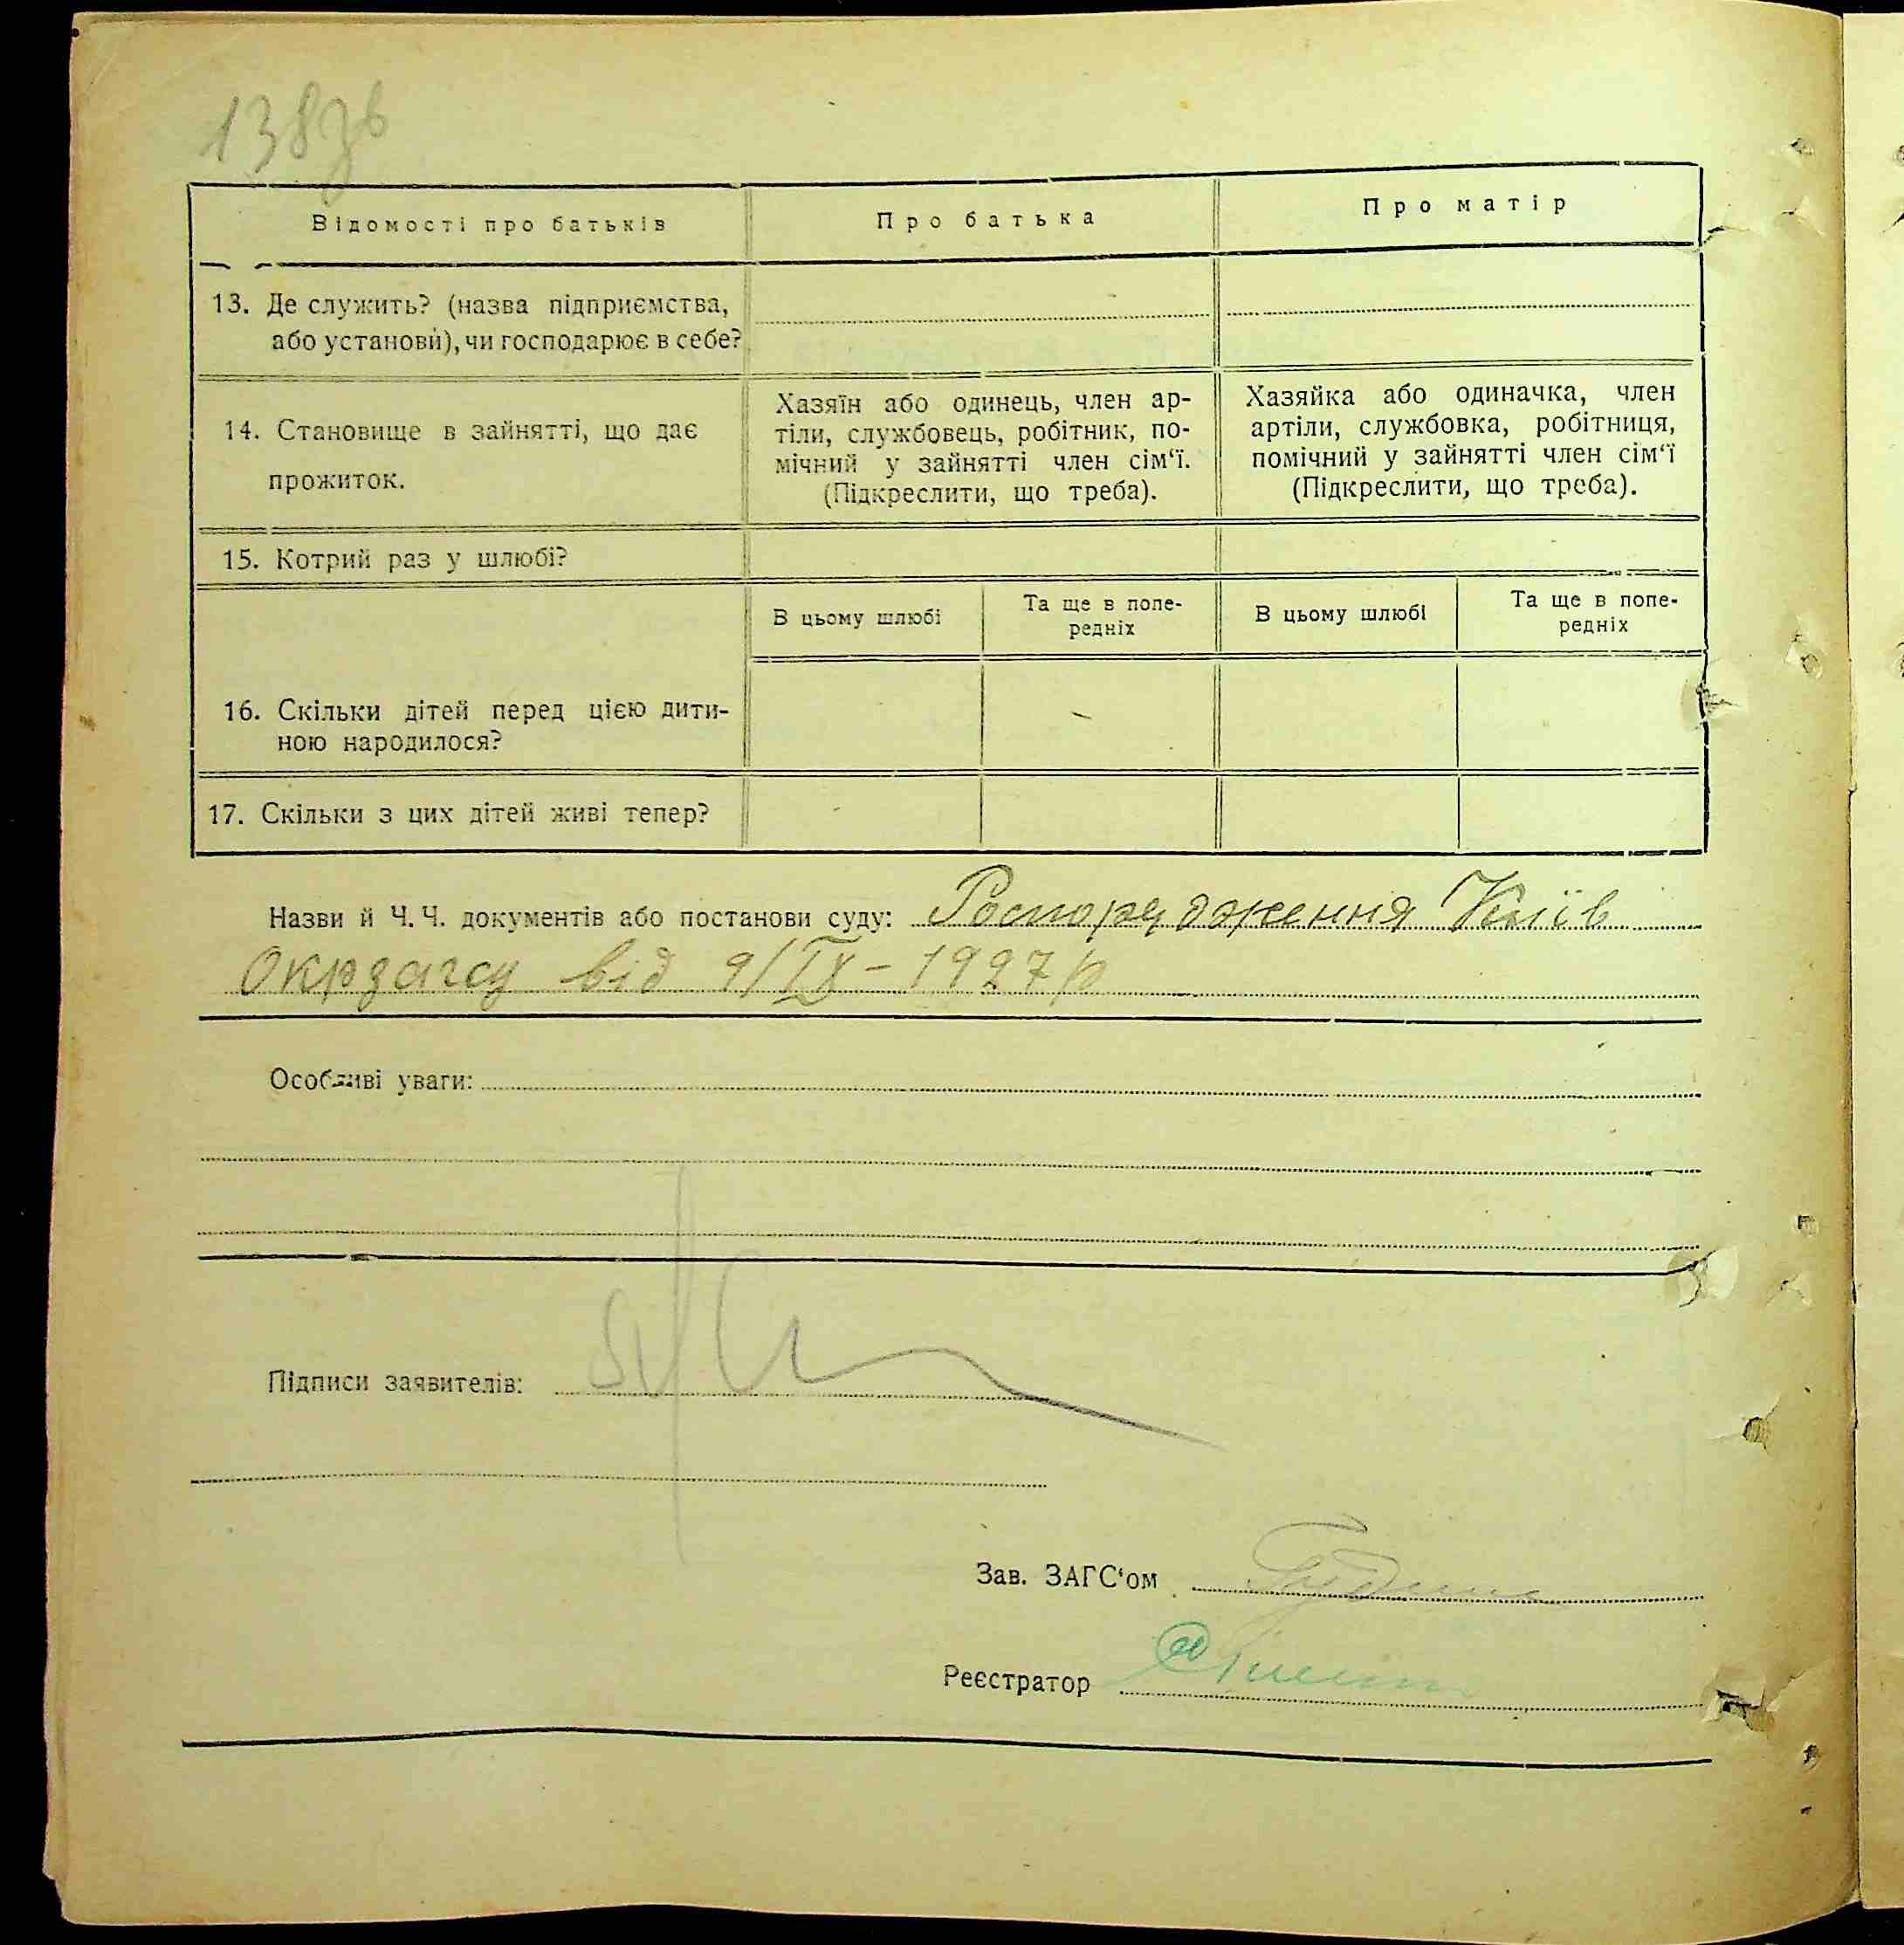 138зв
Відомості про батьків
Про батька
Про матір
13. Де служить? (назва підприємства,
або установи), чи господарює в себе?
14. Становище в зайнятті, що дає
прожиток.
Хазяїн або одинець, член ар-
тіли, службовець, робітник, по-
мічний у зайнятті член сім‘ї.
(Підкреслити, що треба).
Хазяйка або одиначка, член
артіли, службовка, робітниця,
помічний у зайнятті член сім‘ї
(Підкреслити, що треба).
15. Котрий раз у шлюбі?
В цьому шлюбі
Та ще в попе-
редніх
В цьому шлюбі
Та ще в попе-
редніх
16. Скільки дітей перед цією дити-
ною народилося?
17. Скільки з цих дітей живі тепер?
Назви й Ч. Ч. документів або постанови суду: Роспорядження Київ
Окрзагсу від 9/IX - 1927 р
Особливі уваги:
Підписи заявителів:
Зав. ЗАГС‘ом
Реєстратор